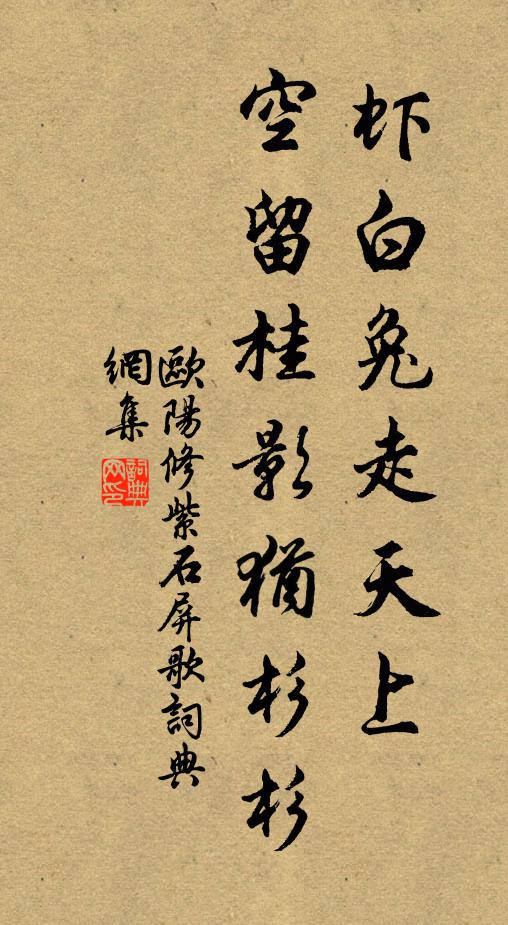 虾白兔走天上
空留桂影猶杉杉
歐陽修紫石屏歌詞典
網集
詞典
网印